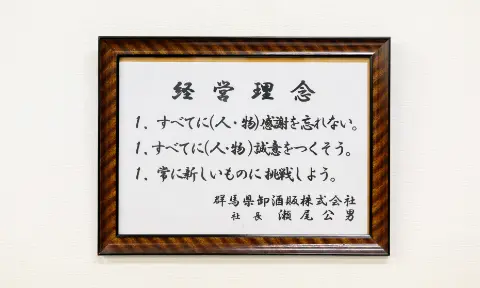 経営理念
1、すべてに(人・物)感謝を忘れない。
1、すべてに(人・物)誠意をつくそう。
1、常に新しいものに挑戦しよう。
群馬県卸酒販株式会社
社長 瀬尾公男